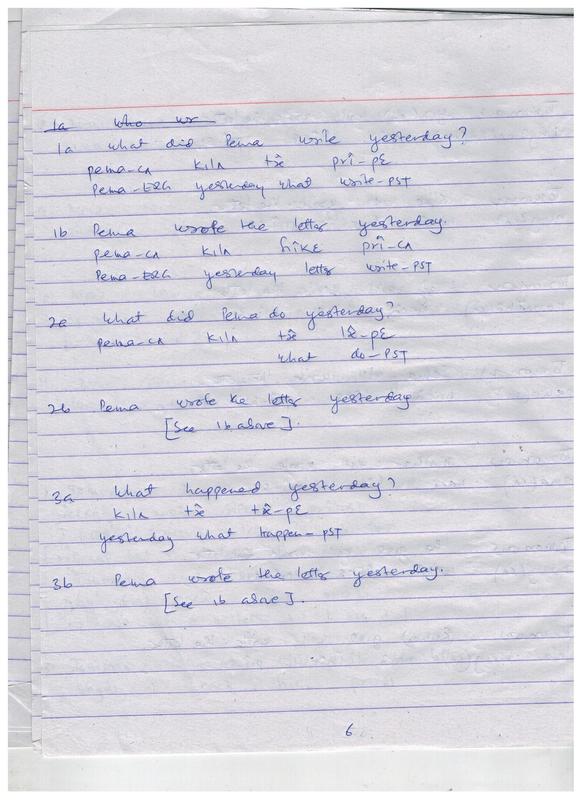 1a who wr
1a what did Pema write yesterday?
pema-cʌ kilʌ tx̂ prî-pɛ
Pema-ERG yesterday what write-PST
1b Pema wrote the letter yesterday.
pema-cʌ kilʌ hîkɛ prî-cʌ
Pema-ERG yesterday letter write-PST
2a What did Pema do yesterday?
pema-cʌ kilʌ tx̂ lx̂-pɛ
what do-PST
2b Pema wrote the letter yesterday
[See 1b above].
3a What happened yesterday?
kilʌ tx̂ tx̂-pɛ
yesterday what happen-PST
3b Pema wrote the letter yesterday.
[See 1b above].
6